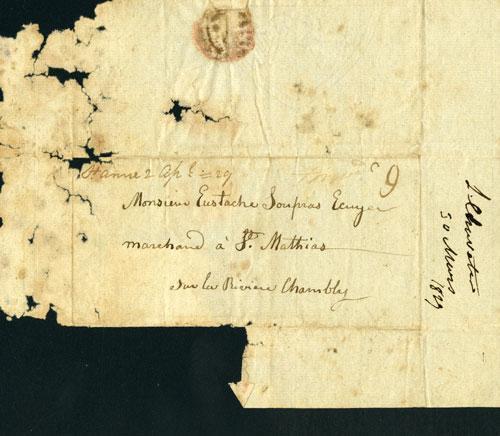 St anne 2 Apl = 29
9
Monsieur Eustache Soupras Ecuyer
marchand à St. Mathias
Sur la Rivière Chambly
30 Mars
1829